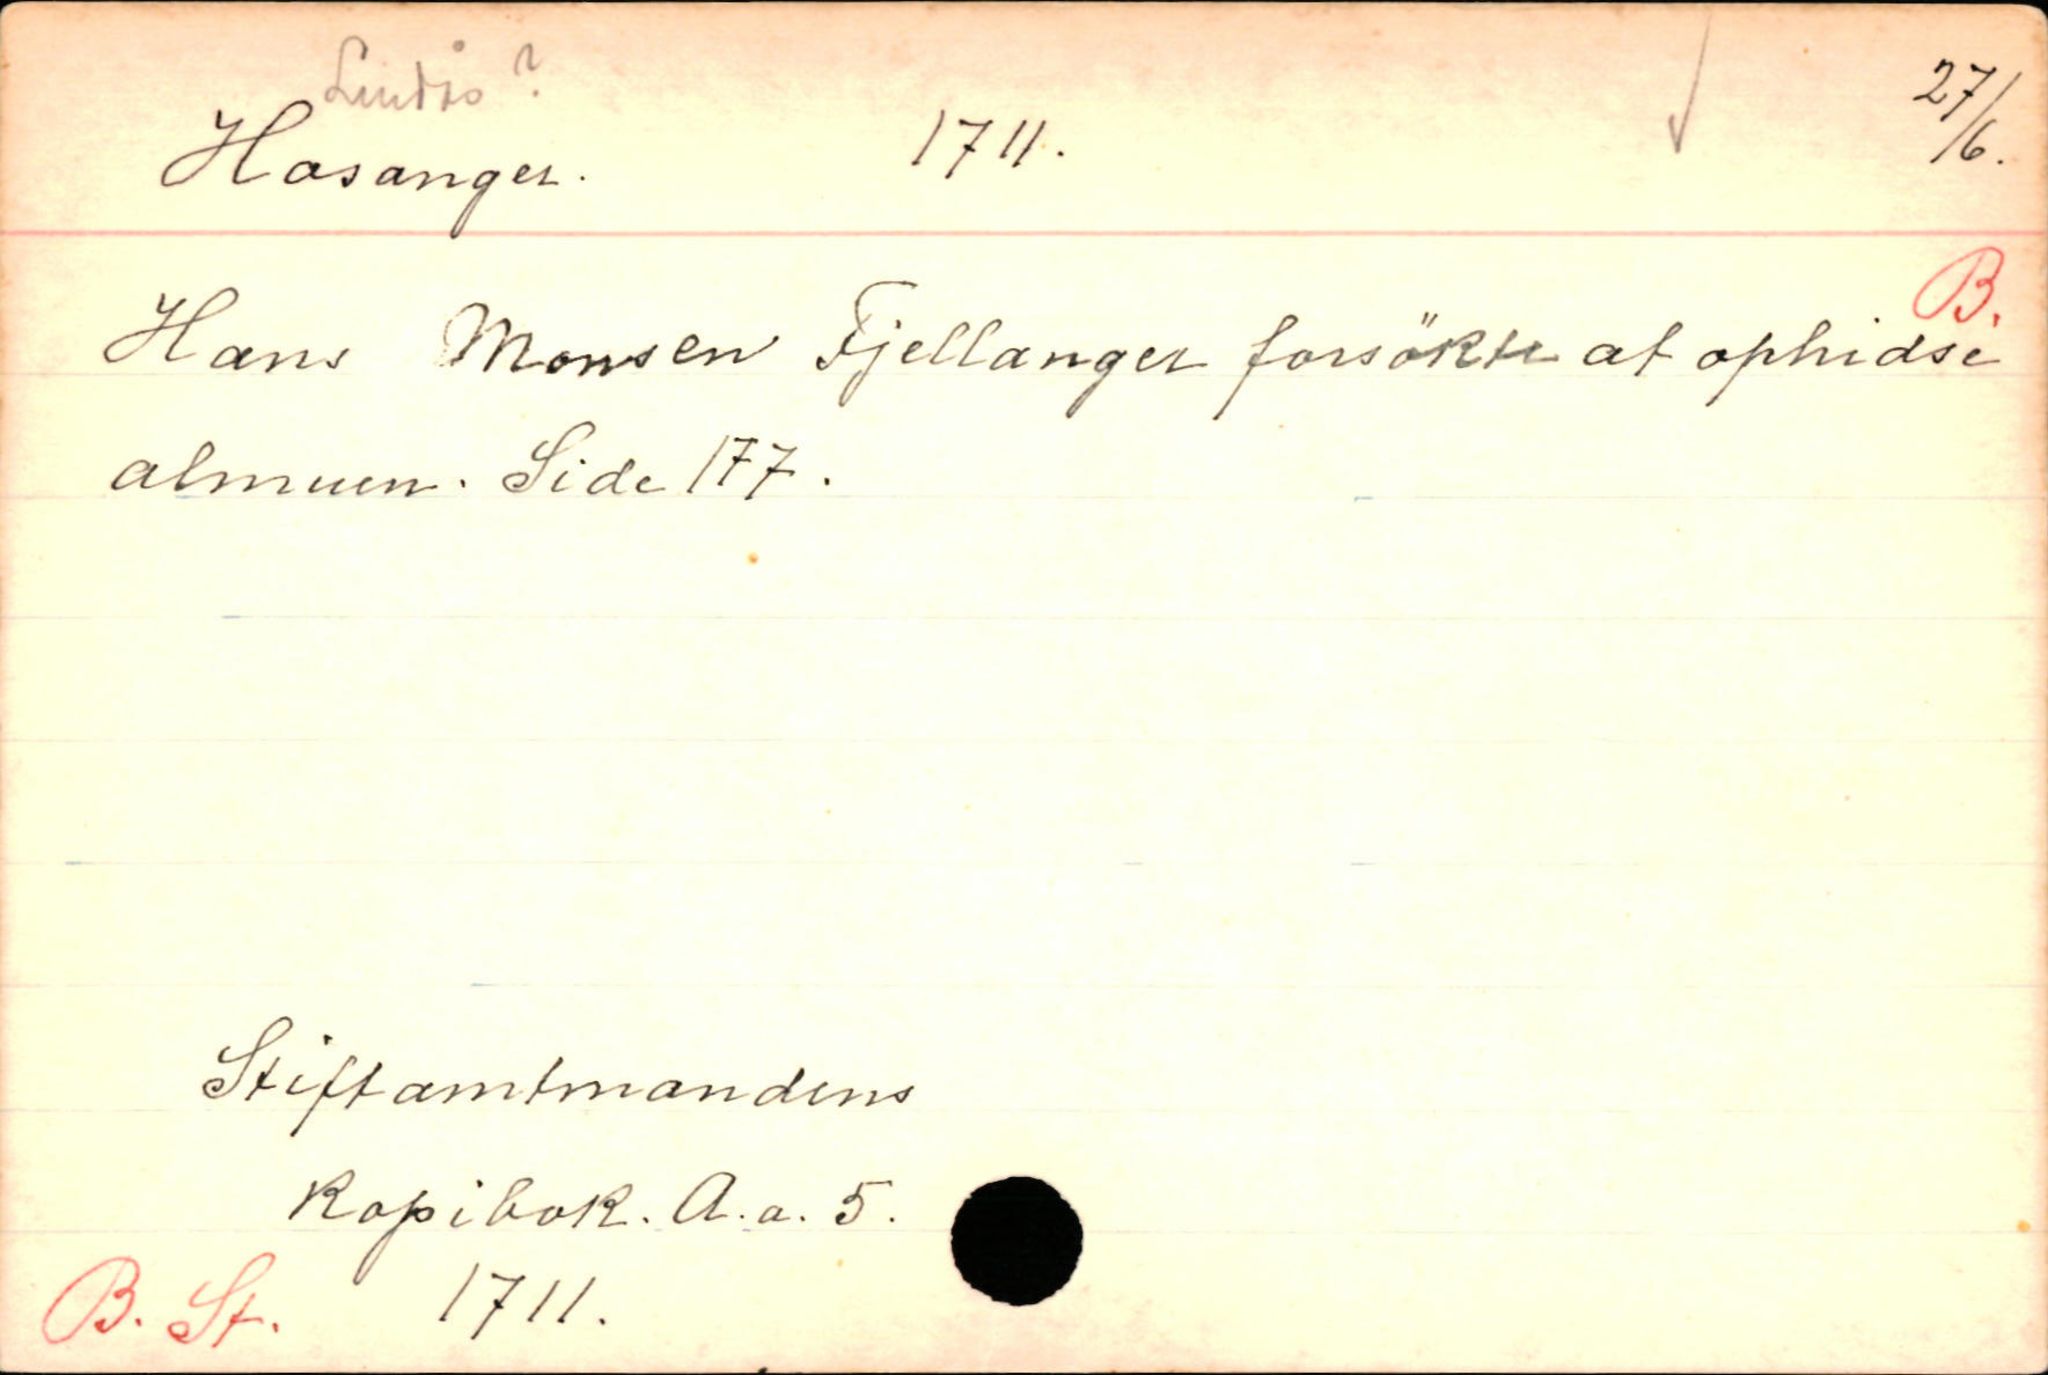 Lindås?
Hosanger. 1711. 27/6.
B.
Hans Monsen Fjellanger forsökte at ophidse
almuen. Side 177.
Stiftamtmandens
Kopibok. A.a. 5.
B. St. 1711.